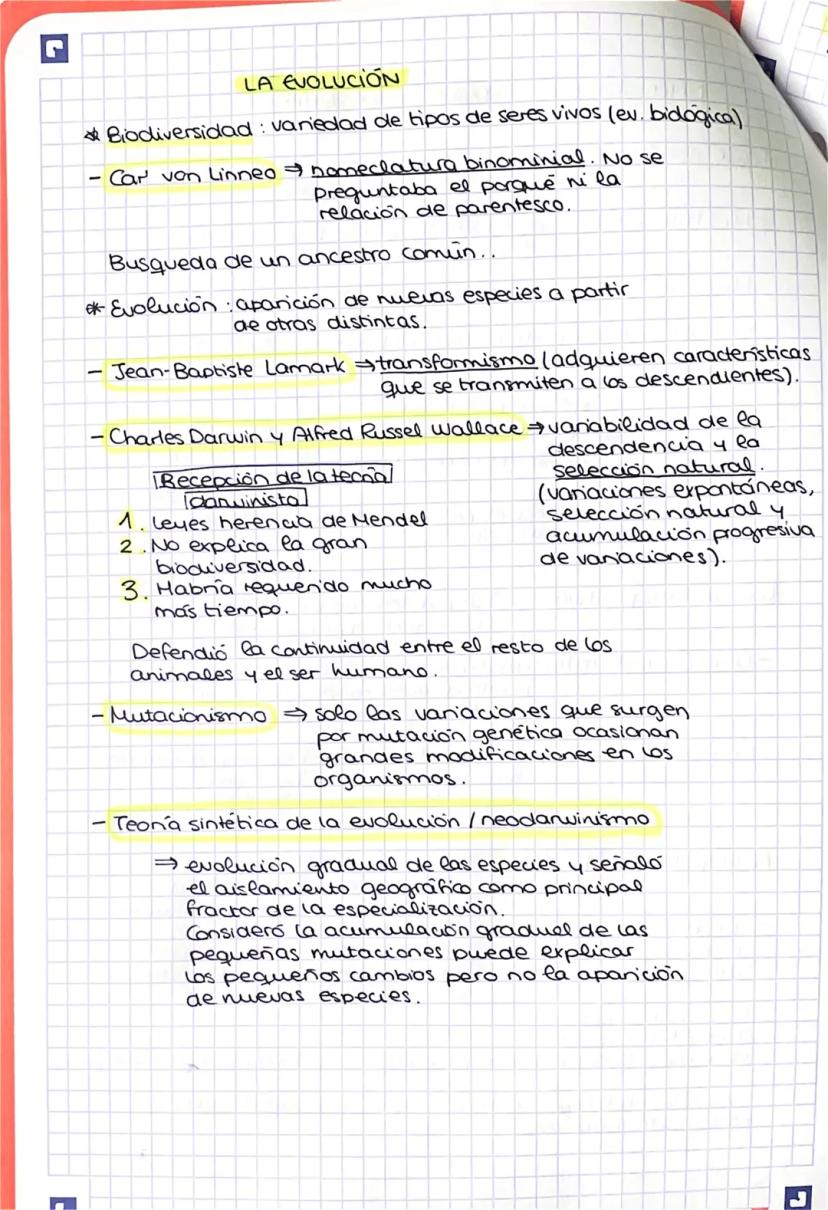 LA EVOLUCIÓN
* Biodiversidad : variedad de tipos de seres vivos (ev. biológica)
- Carl von Linneo ⇒ nomeclatura binominial. No se
preguntaba el porqué ni la
relación de parentesco.
Busqueda de un ancestro común..
* Evolución : aparición de nuevas especies a partir
de otras distintas.
- Jean-Baptiste Lamark ⇒ transformismo (adquieren características
que se transmiten a los descendientes).
- Charles Darwin y Alfred Russel Wallace ⇒ variabilidad de la
descendencia y la
selección natural.
(variaciones expontáneas,
selección natural y
acumulación progresiva
de variaciones).
Recepción de la teoría
darwinista
1. Leyes herencia de Mendel
2. No explica la gran
biodiversidad.
3. Habría requerido mucho
más tiempo.
Defendió la continuidad entre el resto de los
animales y el ser humano.
- Mutacionismo ⇒ solo las variaciones que surgen
por mutación genética ocasionan
grandes modificaciones en los
organismos.
- Teoría sintética de la evolución / neodarwinismo
⇒ evolución gradual de las especies y señaló
el aislamiento geográfico como principal
fractor de la especialización.
Consideró la acumulación gradual de las
pequeñas mutaciones puede explicar
los pequeños cambios pero no la aparición
de nuevas especies.